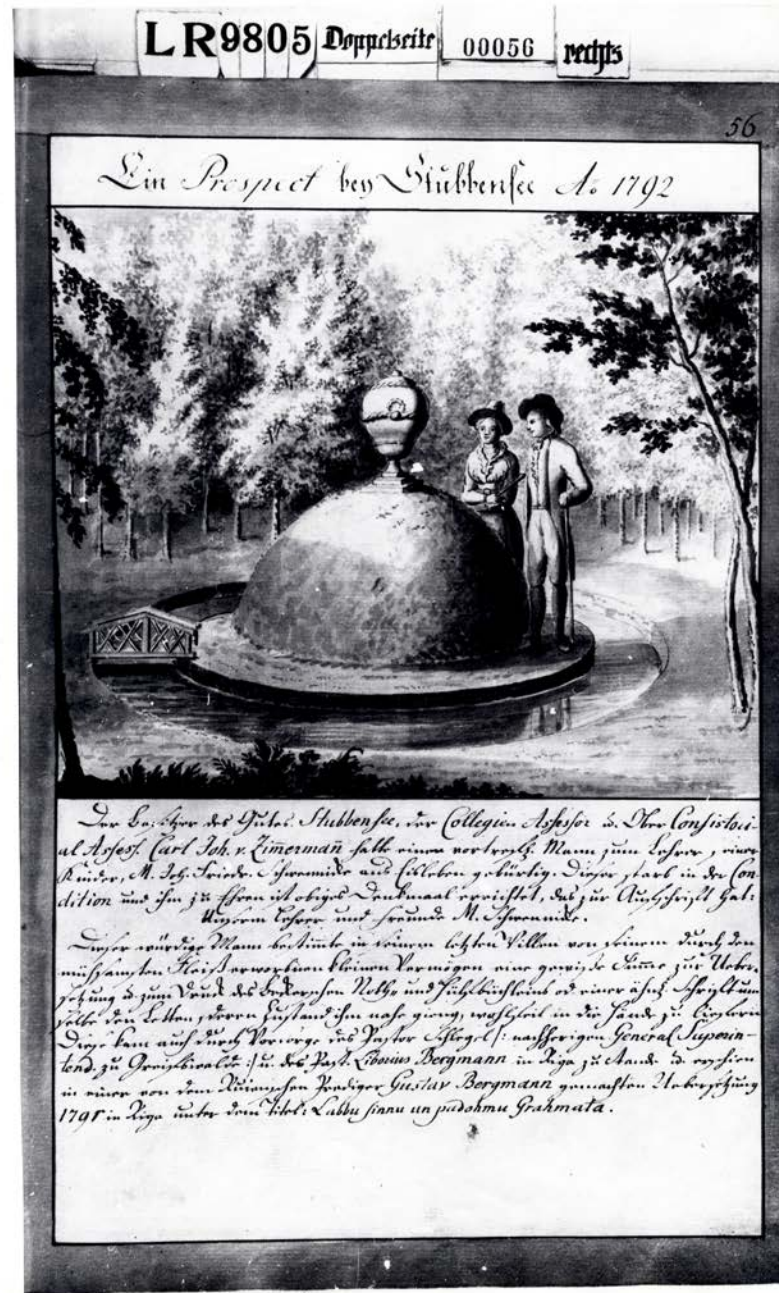 LR9805 Doppelseite 00056 rechts
56
Ein Prospect bey Stubbensee Ao 1792
Der Besitzer des Gutes Stubbensee, der Collegien Assessor u. Ober Consistori-
al Assess. Carl Joh. v. Zimmermañ hatte einen vortrefl. Mann zum Lehrer seiner
Kinder, M. Joh. Friedr. Schwennicke aus Eisleben gebürtig. Dieser starb in der Con-
dition und ihm zu Ehren ist obiges Denkmaal errichtet, das zur Aufschrift hat:
Unserm Lehrer und Freunde M. Schwennicke.
Dieser würdige Mann bestimte in seinem letzten Willen von seinem durch den
mühsamsten Fleiß erworbnen kleinen Vermögen eine gewisse Summe zur Ueber-
setzung u. zum Druck des Beckerschen Noth- und Hülfsbüchleins od einer ähnl. Schrift um
selbe den Letten, deren Zustand ihm nahe gieng, wohlfeil in die Hände zu liefern
Diese kam auch durch Vorsorge des Pastor Schlegel /: nachherigen General Superin-
tend. zu Greifswalde :/ u. des Past. Liborius Bergmann in Riga zu Stande u. erschien
in einer von dem Rujenschen Prediger Gustav Bergmann gemachten Uebersetzung
1791 in Riga unter dem Titel: Labbu sinnu un padohmu Grahmata.